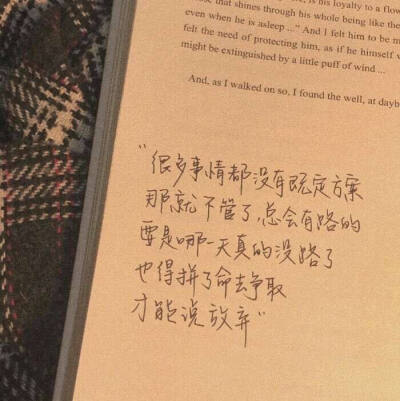 is his loyalty to a flow
that shines through his whole being like the
even when he is asleep ..." And I felt him to be m
felt the need of protecting him, as if he himself w
might be extinguished by a little puff of wind ...
And, as I walked on so, I found the well, at dayb
“很多事情都没有既定方案
那就不管了，总会有路的
要是哪一天真的没路了
也得拼了命去争取
才能说放弃”